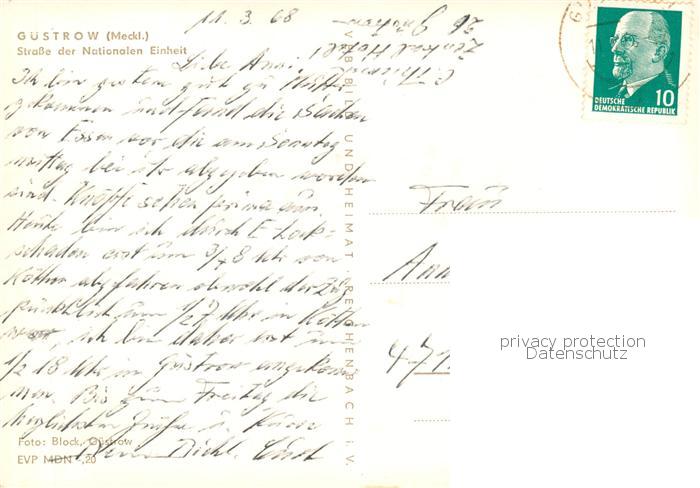 GÜSTROW (Meckl.)
Straße der Nationalen Einheit
11. 3. 68
Liebe Anni!
Ich bin gestern gut zu
gekommen und fand die Sachen
von Essen vor die am Sonntag
mittag bei abgegeben worden
sind. Knöpfe sehen prima aus.
Heute bin ich durch E Lok-
schaden erst um 3/4 8 Uhr von
Köthen abgefahren obwohl der Zug
pünktlich um 1/2 7 Uhr in Köthen
war, ich bin daher erst um
1/2 18 Uhr in Güstrow angekom
men. Bis zum Freitag die
herzlichsten Grüße u. Küsse
Dein Dichl.
Foto: Block, Güstrow
EVP MDN -,20
VEB BILD UND HEIMAT REICHENBACH i. V.
26 Güstrow
Zentral Hotel
DEUTSCHE
DEMOKRATISCHE REPUBLIK
10
Frau
Ann
471
privacy protection
Datenschutz